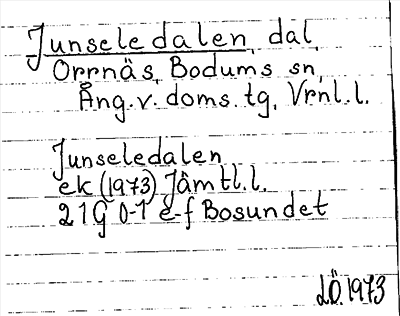 Junseledalen, dal,
Orrnäs, Bodums sn,
Ång.v. doms. tg, Vrnl.l.
Junseledalen
ek (1973) Jämtl.l.
21G 0-1 e-f Bosundet
LÖ.1973